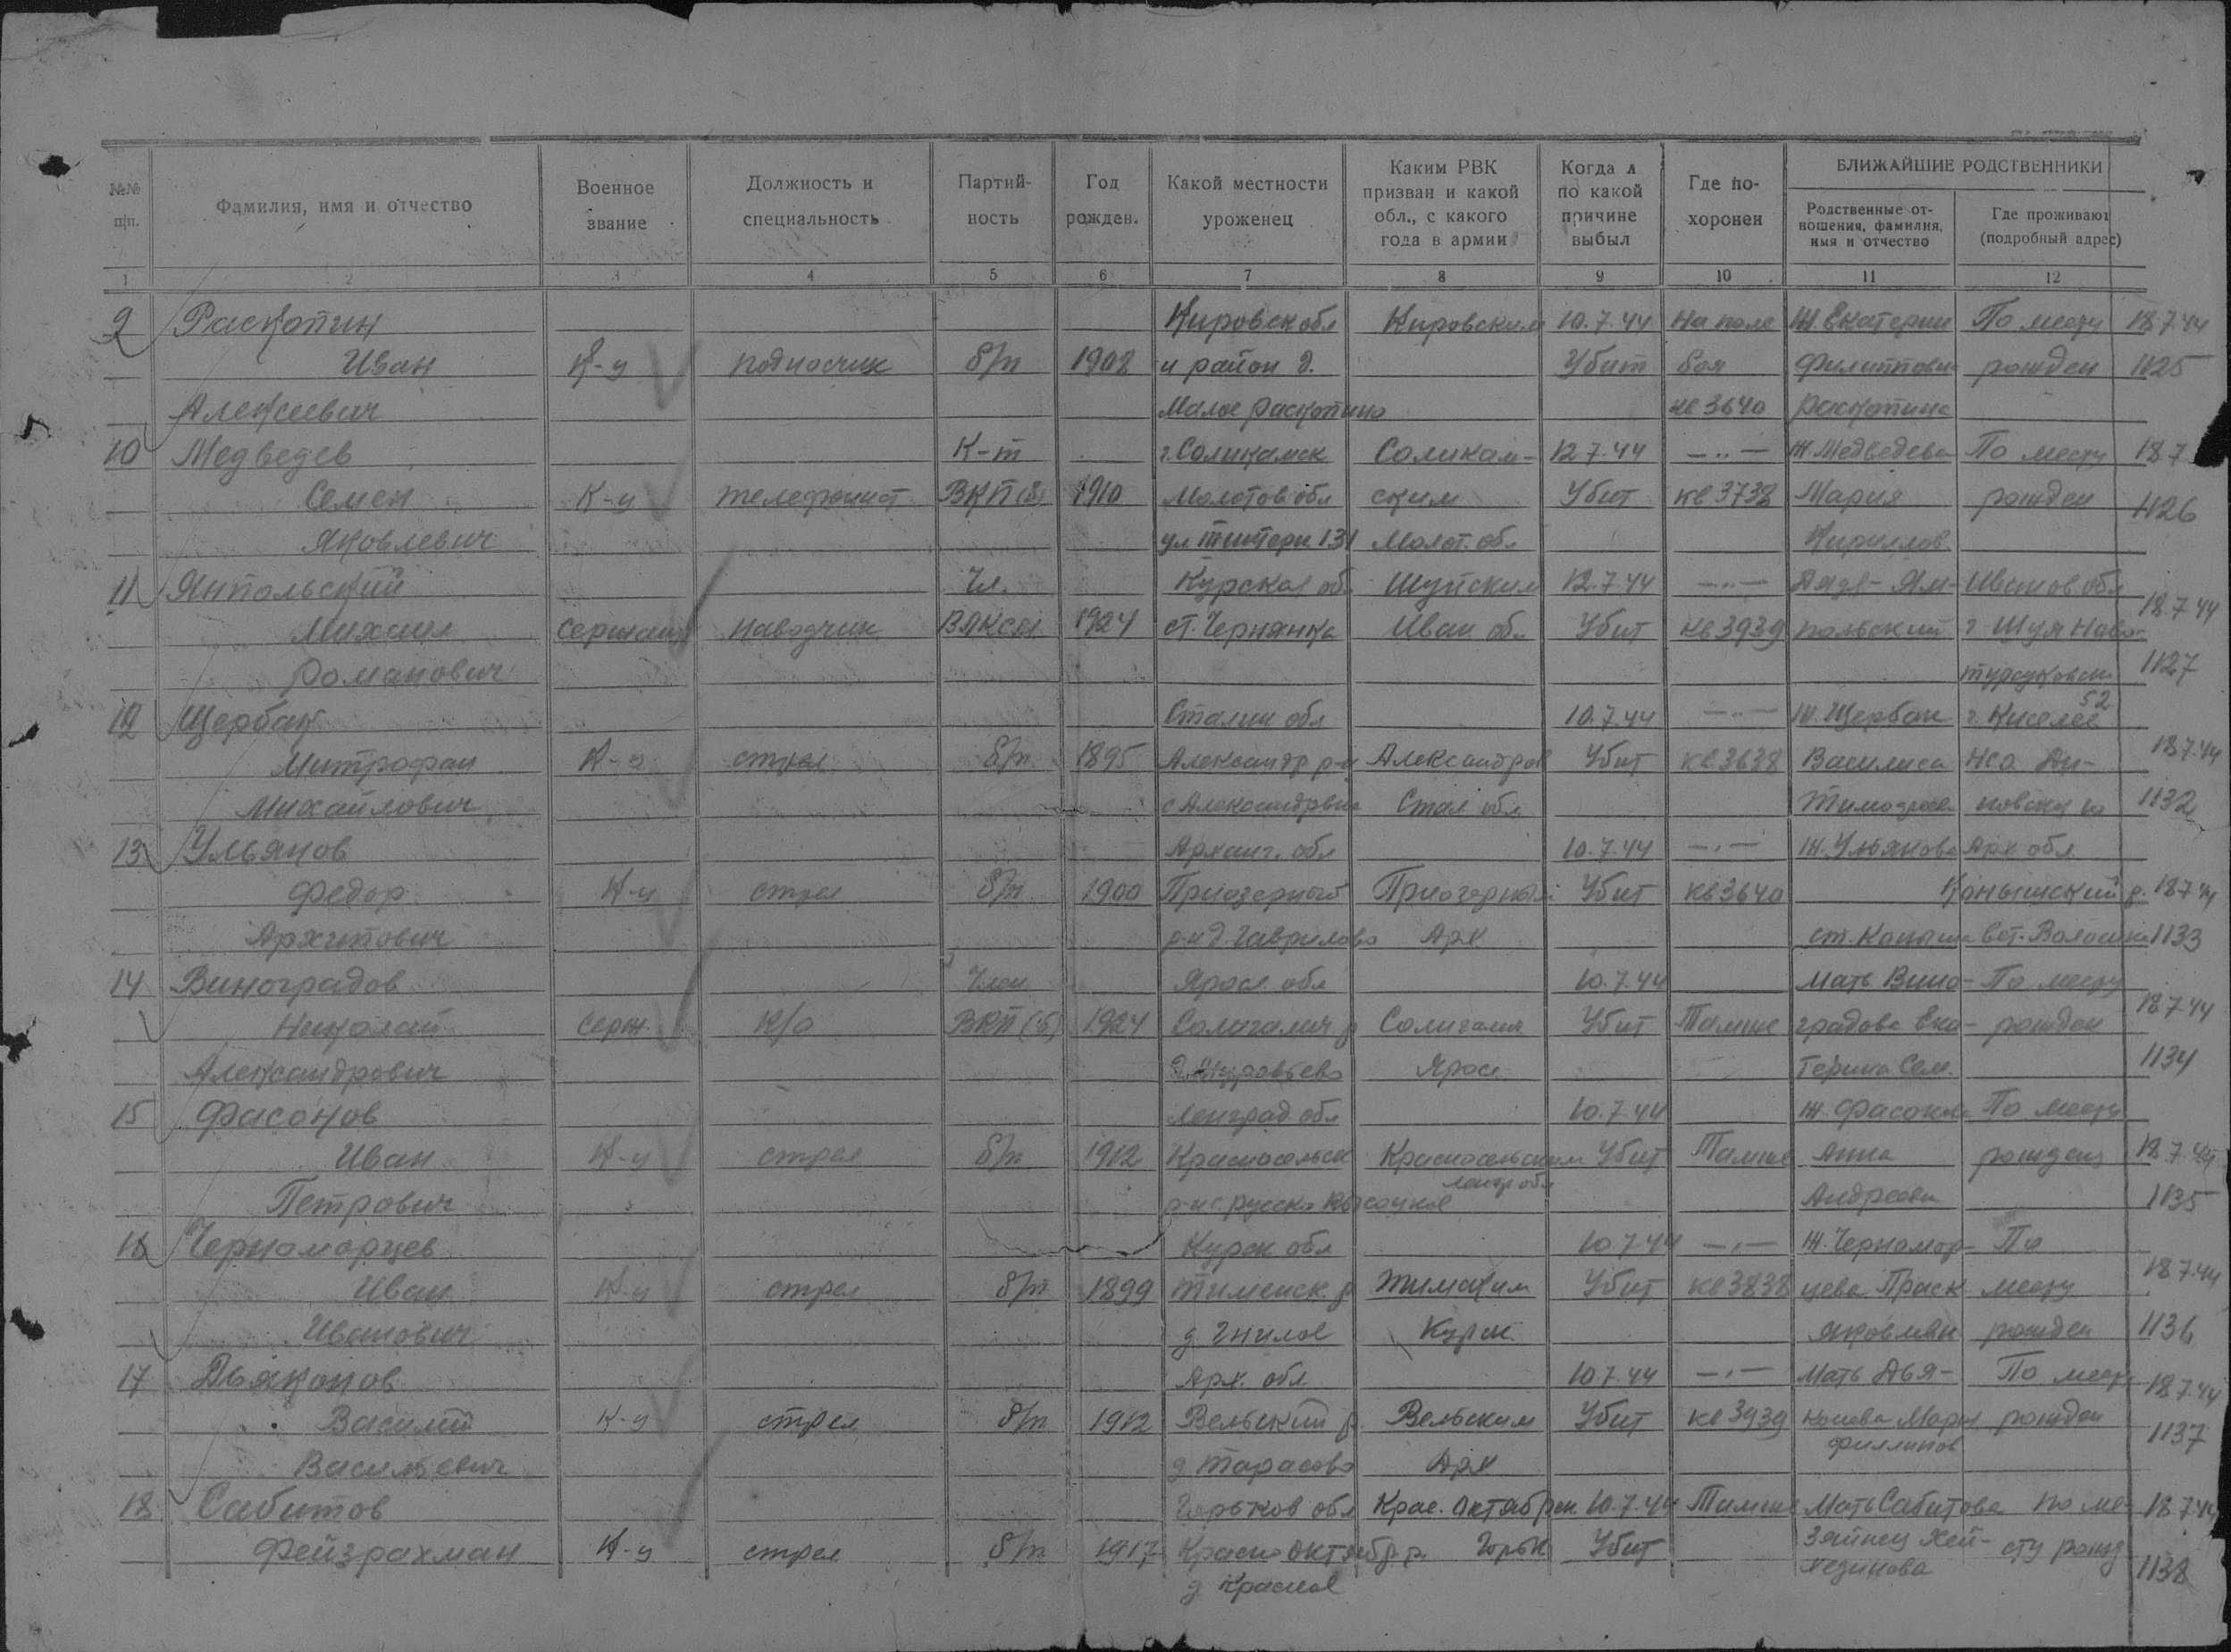 №№ п/п.
Фамилия, имя и отчество
Военное звание
Должность и специальность
Партий-ность
Год рожден.
Какой местности уроженец
Каким РВК призван и какой обл., с какого года в армии
Когда и по какой причине выбыл
Где по-хоронен
БЛИЖАЙШИЕ РОДСТВЕННИКИ
Родственные от-ношения, фамилия, имя и отчество
Где проживают (подробный адрес)
1 2 3 4 5 6 7 8 9 10 11 12
9 Раскопин Кировск обл Кировским 10.7.44 на поле Ж. Екатерин По месту 18.7.44
Иван К-ц подносчик б/п 1908 и район д. Убит боя Филиппови рожден 1125
Алексеевич Малое Раскопино кв 3640 Раскопина
10 Медведев К-т г. Соликамск Соликам- 12.7.44 —〃— Ж. Медведева По месту 18.7
Семен К-ц телефонист ВКП(б) 1910 Молотов обл ским Убит кв 3738 Мария рожден 1126
Яковлевич ул 131 Молот. обл Кириллов
11 Ямпольский Чл. Курская об Шуйским 12.7.44 —〃— Дядя- Ям- Иванов. обл 18.7.44
Михаил сержант наводчик ВЛКСМ 1924 ст. Чернянка Иван обл Убит кв 3939 польский г Шуя Ново-
Романович 1127
12 Щербак Сталин обл 10.7.44 —〃— Ж. Щербак г. Киселев 52
Митрофан К-ц стрел б/п 1895 Александр р-н Александров Убит кв 3638 Василиса 18.7.44
Михайлович Стал обл Тимофеев 1132
13 Ульянов Арханг. обл 10.7.44 —〃— Ж. Ульянова Арх обл
Федор К-ц стрел б/п 1900 Приозерный Приозерным Убит кв 3640 Конышский р. 18.7.44
Архипович р-н д. Гаврилово Арх ст. Коныша 1133
14 Виноградов Член Яросл обл 10.7.44 Мать Вино- По месту
Николай Серж К/о ВКП(б) 1924 Солигалич р Солигалич Убит Тамже градова Ека- рожден 18.7.44
Александрович Яросл терина Сем. 1134
15 Фасонов Ленград. обл 10.7.44 Ж. Фасонова По месту
Иван К-ц стрел б/п 1912 Красносельск Красносельским Убит Тамже Анна рождени 18.7.44
Ленгр обл
Петрович р-н с. Русско Высоцкое Андреевн 1135
16 Черноморцев Курск обл 10.7.44 —〃— Ж. Черномор- По
Иван К-ц стрел б/п 1899 Тимск. р Тимским Убит кв 3838 цева Праск месту 18.7.44
Иванович д. Гнилое Курск. Яковлевн рожден 1136
17 Дьяконов Арх. обл 10.7.44 —〃— Мать Дья- По месту 18.7.44
Василий К-ц стрел б/п 1912 Вельский р. Вельским Убит кв 3939 конова Мария рожден 1137
Филлипов
Васильевич д Тарасово Арх
18 Сабитов Горьков обл Крас. Октябрск. 10.7.44 Тамже Мать Сабитова по ме- 18.7.44
Фейзрахман К-ц стрел б/п 1917 Красно октябр р. Горьк Убит сту рожд 1138
д Красное